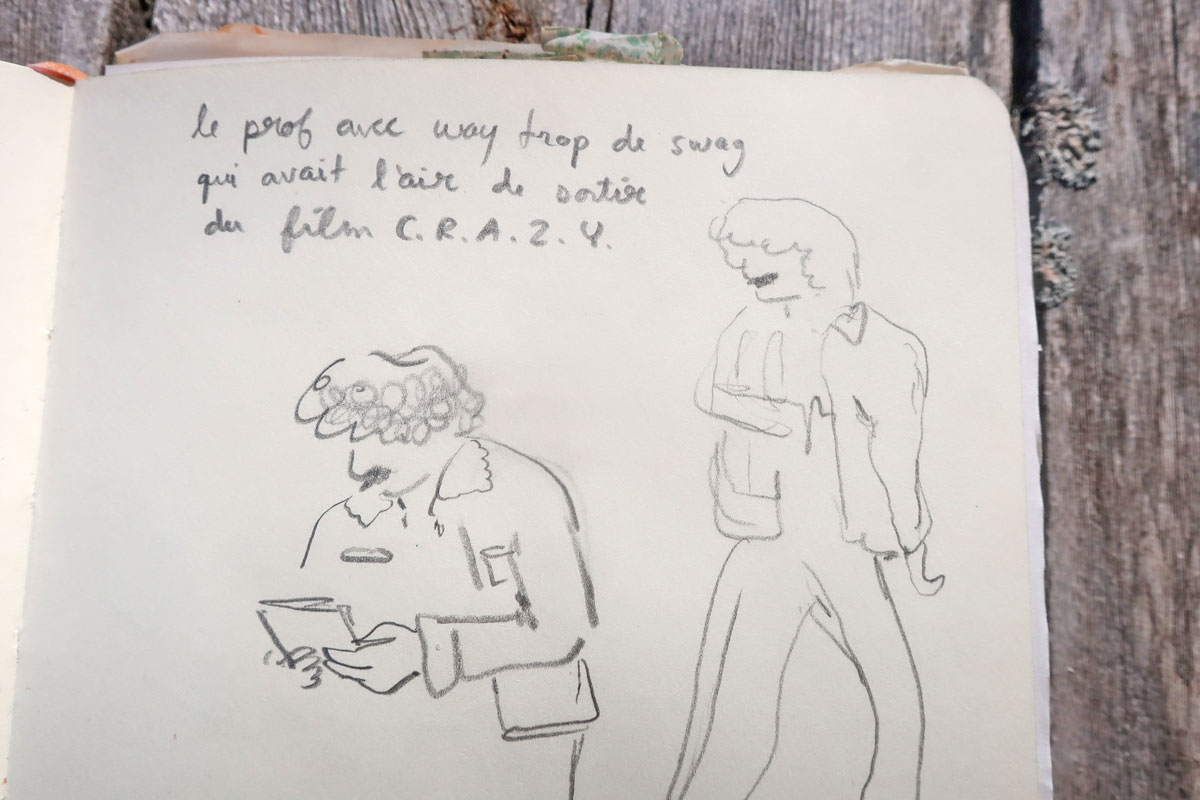 le prof avec way trop de swag
qui avait l'air de sortir
du film C.R.A.Z.Y.